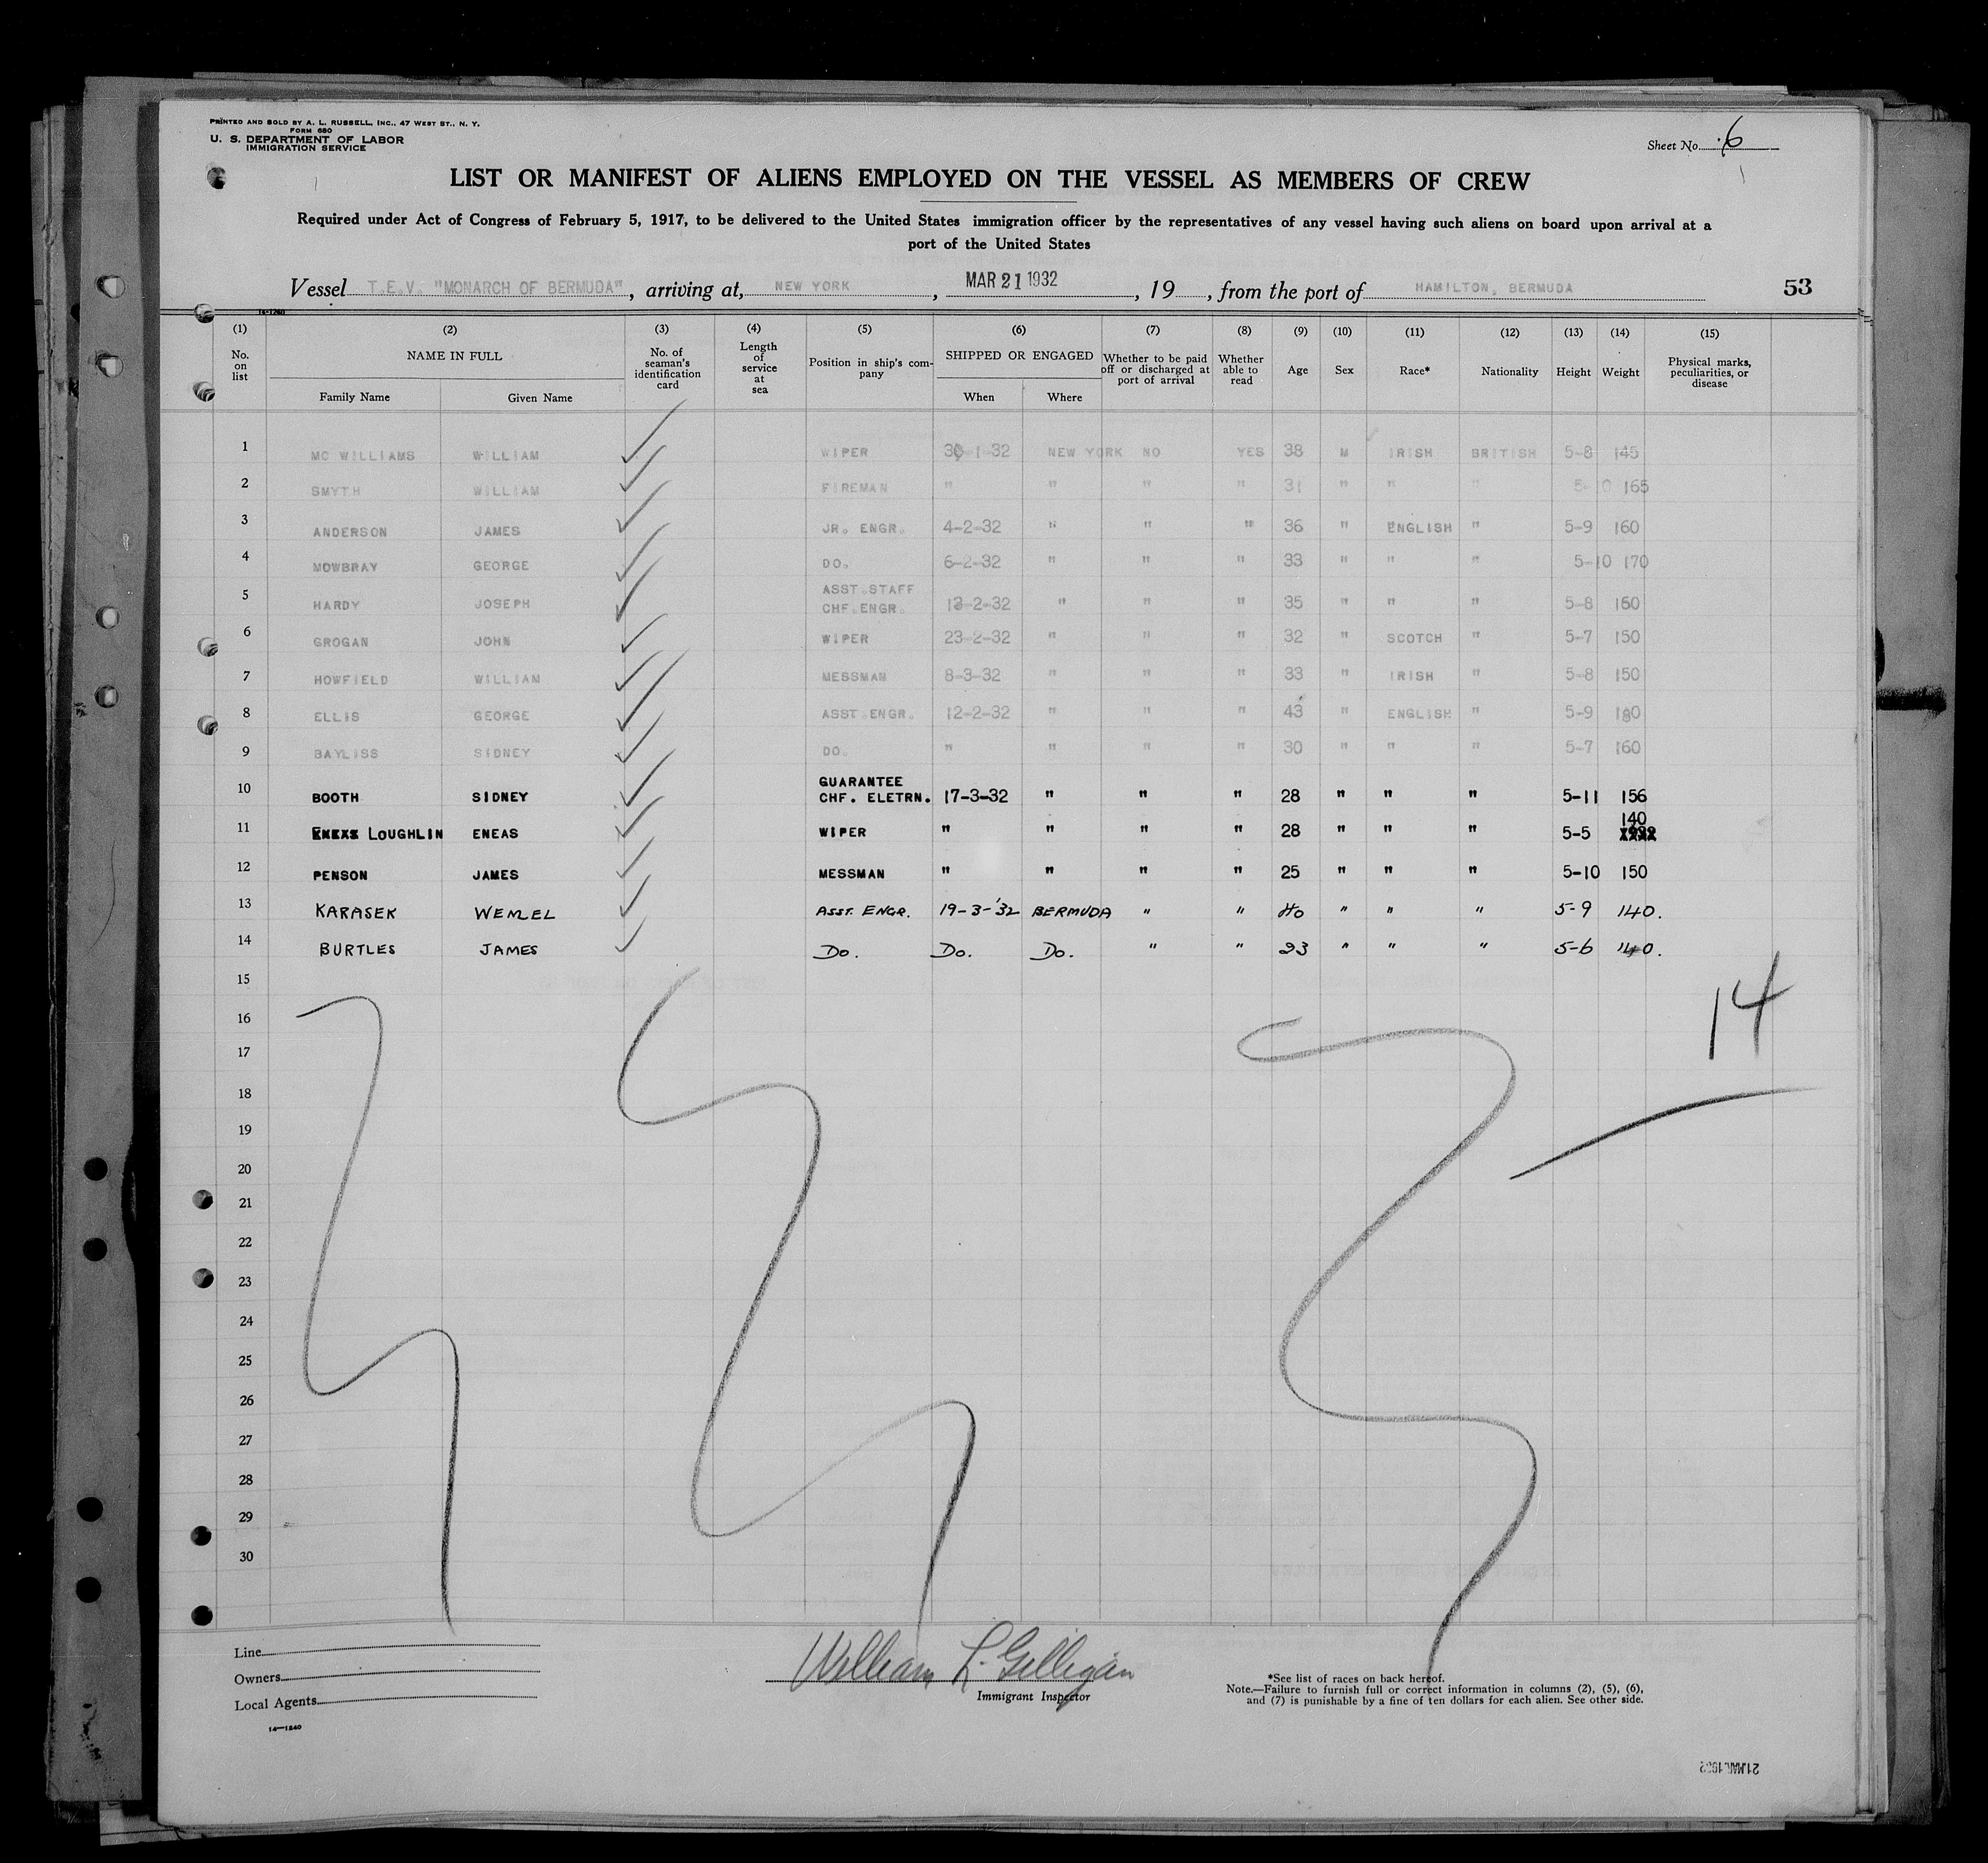 PRINTED AND SOLD BY A. L. RUSSELL, INC., 47 WEST ST., N. Y.
FORM 680
U. S. DEPARTMENT OF LABOR
IMMIGRATION SERVICE
Sheet No. 6
LIST OR MANIFEST OF ALIENS EMPLOYED ON THE VESSEL AS MEMBERS OF CREW
Required under Act of Congress of February 5, 1917, to be delivered to the United States immigration officer by the representatives of any vessel having such aliens on board upon arrival at a
port of the United States
Vessel T.E.V. "MONARCH OF BERMUDA", arriving at, NEW YORK, MAR 21 1932, 19, from the port of HAMILTON, BERMUDA 53
(1) (2) (3) (4) (5) (6) (7) (8) (9) (10) (11) (12) (13) (14) (15)
No. on list NAME IN FULL No. of seaman's identification card Length of service at sea Position in ship's company SHIPPED OR ENGAGED Whether to be paid off or discharged at port of arrival Whether able to read Age Sex Race* Nationality Height Weight Physical marks, peculiarities, or disease
Family Name Given Name When Where
1 MC WILLIAMS WILLIAM WIPER 30-1-32 NEW YORK NO YES 38 M IRISH BRITISH 5-8 145
2 SMYTH WILLIAM FIREMAN " " " " 31 " " " 5-10 165
3 ANDERSON JAMES JR. ENGR. 4-2-32 " " " 36 " ENGLISH " 5-9 160
4 MOWBRAY GEORGE DO. 6-2-32 " " " 33 " " " 5-10 170
5 HARDY JOSEPH ASST.STAFF CHF.ENGR. 13-2-32 " " " 35 " " " 5-8 160
6 GROGAN JOHN WIPER 23-2-32 " " " 32 " SCOTCH " 5-7 150
7 HOWFIELD WILLIAM MESSMAN 8-3-32 " " " 33 " IRISH " 5-8 150
8 ELLIS GEORGE ASST.ENGR. 12-2-32 " " " 43 " ENGLISH " 5-9 180
9 BAYLISS SIDNEY DO. " " " " 30 " " " 5-7 160
10 BOOTH SIDNEY GUARANTEE CHF. ELETRN. 17-3-32 " " " 28 " " " 5-11 156
11 LOUGHLIN ENEAS WIPER " " " " 28 " " " 5-5 140
12 PENSON JAMES MESSMAN " " " " 25 " " " 5-10 150
13 KARASEK WENZEL ASST. ENGR. 19-3-'32 BERMUDA " " 40 " " " 5-9 140.
14 BURTLES JAMES Do. Do. Do. " " 23 " " " 5-6 140.
15
16
14
17
18
19
20
21
22
23
24
25
26
27
28
29
30
Line
Owners
Local Agents
14—1240
William L. Gilligan
Immigrant Inspector
*See list of races on back hereof.
Note.—Failure to furnish full or correct information in columns (2), (5), (6),
and (7) is punishable by a fine of ten dollars for each alien. See other side.
21 MAR 1932